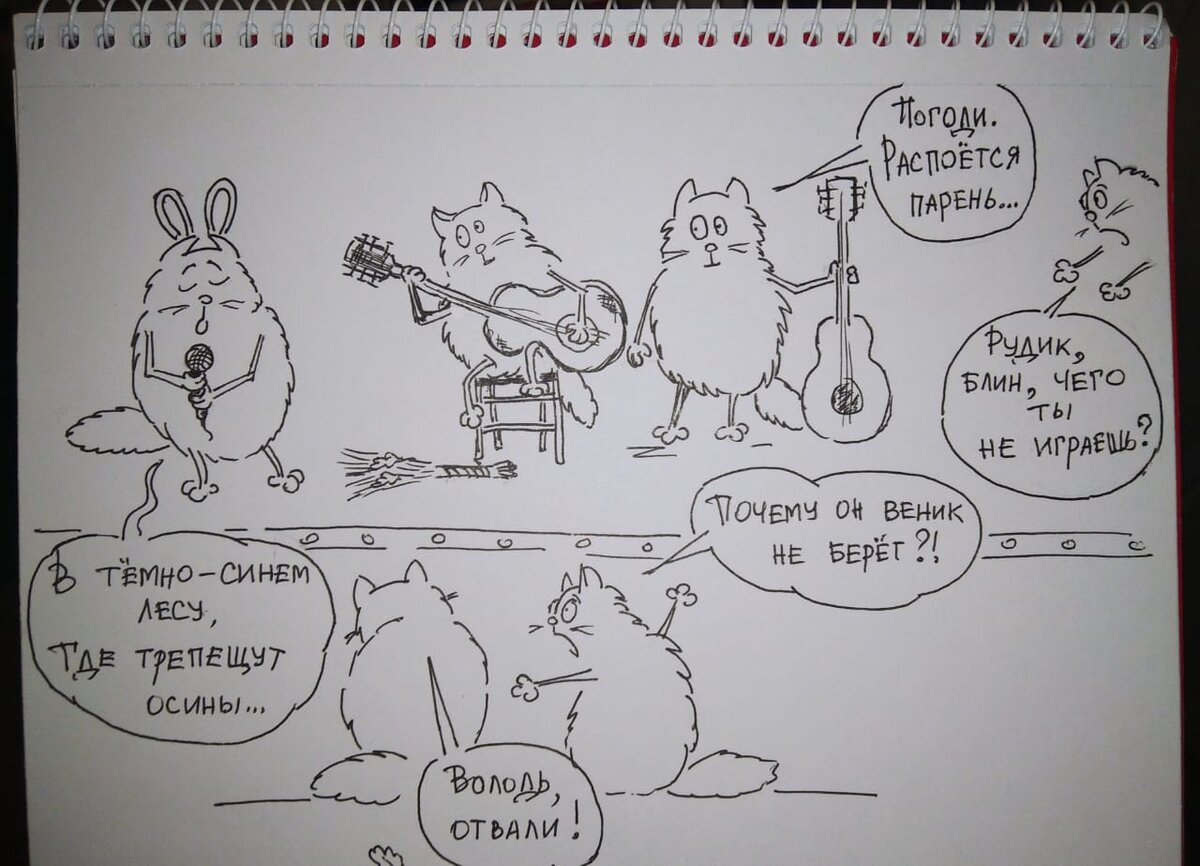 Погоди.
Распоётся
парень...
Рудик,
блин, чего
ты
не играешь?
Почему он веник
не берёт?!
В тёмно-синем
лесу,
Где трепещут
осины...
Володь,
отвали!